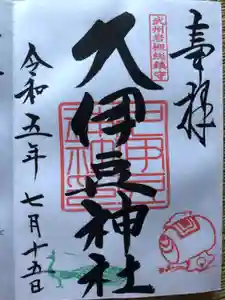 奉拝
武州岩槻総鎮守
久伊豆神社
令和五年七月十五日